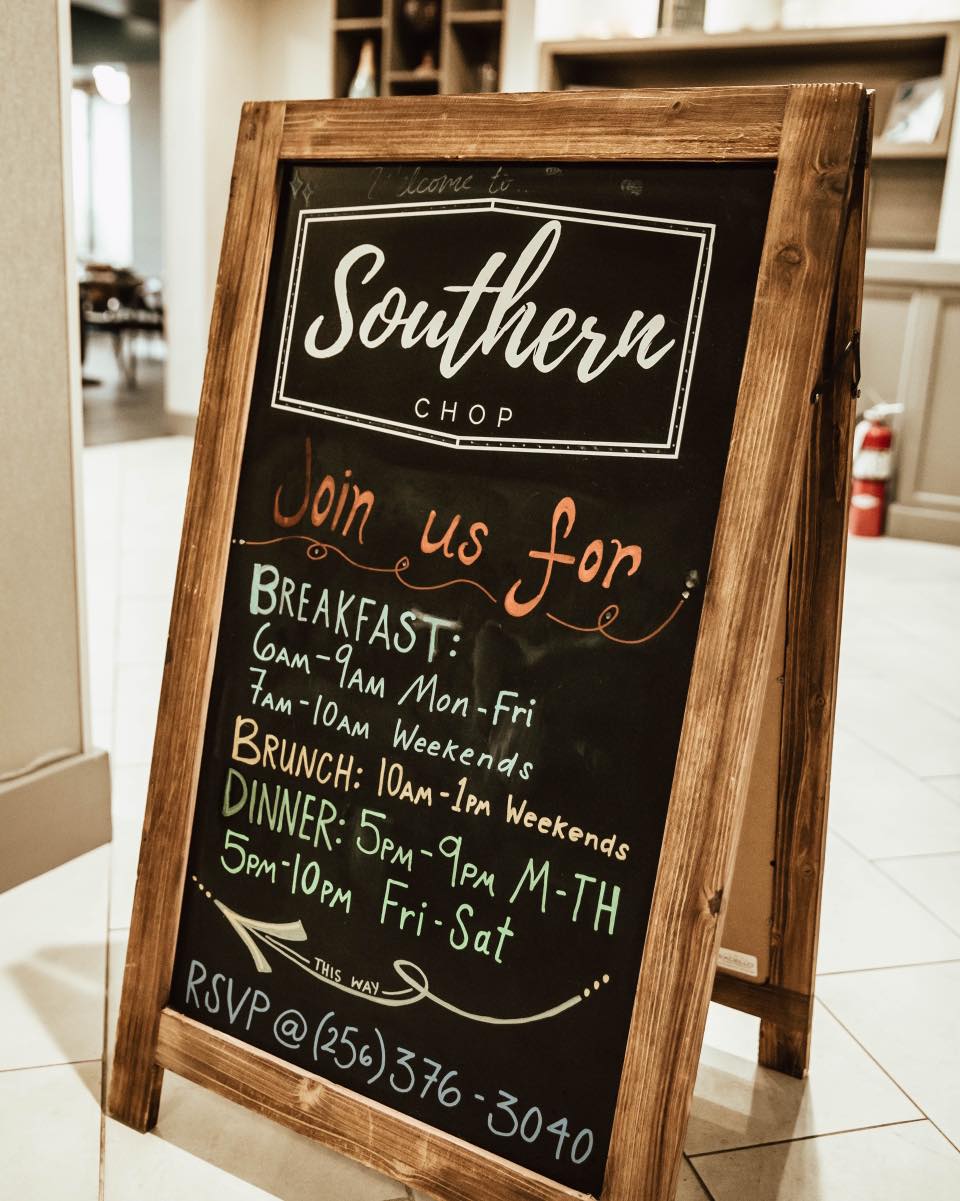 Welcome to...
Southern
CHOP
Join us for
BREAKFAST:
6AM-9AM Mon-Fri
7AM-10AM Weekends
BRUNCH: 10AM-1PM Weekends
DINNER: 5PM-9PM M-TH
5PM-10PM Fri-Sat
THIS WAY
RSVP @ (256) 376-3040